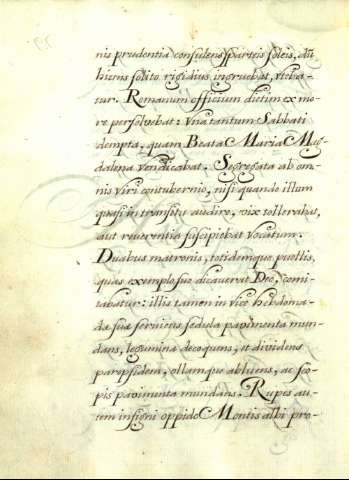 nis prudentia considens sparteis soleis, dũ
hiems solito rigidius ingruebat, uteba-
tur. Romanum officium dictim ex mo-
re persolvebat: Una tantum Sabbati
dempta, quam Beata Maria Mag-
dalena vendicabat. Segregata ab om-
nis viri contubernio, nisi quando illum
quasi in transitu audire, vix tollerabat,
aut reverentia suscipiebat vocatum.
Duabus matronis, totidemque puellis,
quas exemplo suo dicaverat Deo, comi-
tabatur: illis tamen in vice hebdoma-
da sua serviens sedula pavimenta mun-
dans, legumina decoquens, et dividens
paropsidem, ollamque abluens, ac sco-
pis pavimenta mundans. Rupis au-
tem insigni oppido Montis albi pro-